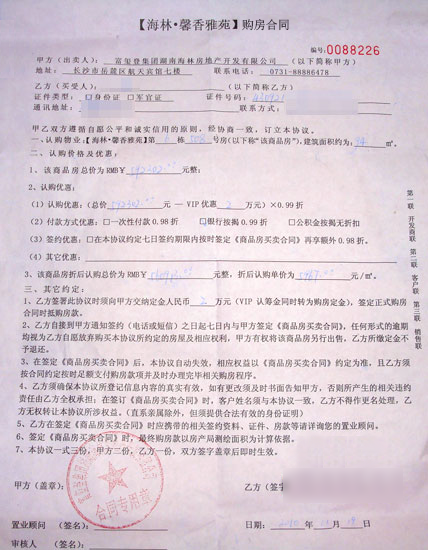 【海林·馨香雅苑】购房合同
编号:0088226
甲方（出卖人）： 富玺登集团湖南海林房地产开发有限公司 （以下简称甲方）
地址： 长沙市岳麓区航天宾馆七楼 联系电话： 0731-88886478
乙方（买受人）： （以下简称乙方）
证件类型：□身份证 □军官证 证件号码：
通讯地址： 联系方式：
甲乙双方遵循自愿公平和诚实信用的原则，经协商一致，订立本协议。
一、认购物业：【海林·馨香雅苑】 栋 号房（以下称"该商品房"），建筑面积约为: ㎡。
二、认购价格及优惠：
1、该商品房总价为RMB￥592302.00元整；
2、认购优惠：
(1) 认购优惠：（总价592302.00元 — VIP优惠 2 万元）×0.99折
(2) 付款方式优惠：□一次性付款0.98折 □银行按揭0.99折 □公积金按揭无折扣
(3) 签约优惠：□在本协议约定七日签约期限内按时签定《商品房买卖合同》再享额外0.98折。
(4) 其它优惠：
3、该商品房折后认购总价为RMB￥ 元整，折后认购单价为 元/㎡。
三、其它约定：
1、乙方签署此协议时须向甲方交纳定金人民币 2 万元（VIP认筹金同时转为购房定金），签定正式购房
合同时抵购房款。
2、乙方自接到甲方通知签约（电话或短信）之日起七日内与甲方签定《商品房买卖合同》，任何形式的逾期
均视为乙方自愿放弃购买本协议所约定的房屋及相应权利，甲方有权将该商品房另行出售，乙方所缴定金不
予退还。
3、在签定《商品房买卖合同》后，本协议自动失效，相应权益以《商品房买卖合同》约定为准，且乙方须
按合同约定按时足额支付购房款项并及时办理完毕相关购房程序。
4、乙方须确保本协议所登记信息内容的真实有效，如有更改须及时书面告知甲方，否则所产生的相关违约
责任由乙方全权承担；在签订《商品房买卖合同》时，客户姓名须与本协议一致，乙方不得作更名处理，乙
方无权转让本协议所涉权益。（直系亲属除外，但须提供合法有效的身份证明）
5、乙方在签定《商品房买卖合同》时应携带的相关签约资料、证件、房款等请详询您的置业顾问。
6、签定《商品房买卖合同》时，最终购房款以房产局测绘面积为计算依据。
7、本协议一式三份，甲方三份，乙方一份，双方签字盖章后即时生效。
甲方（盖章）： 乙方（签字
合同专用章
置业顾问 （签名）： 日期：
审核人 （签名）：
第一联 开发商联 第二联 客户联 第三联 销售联